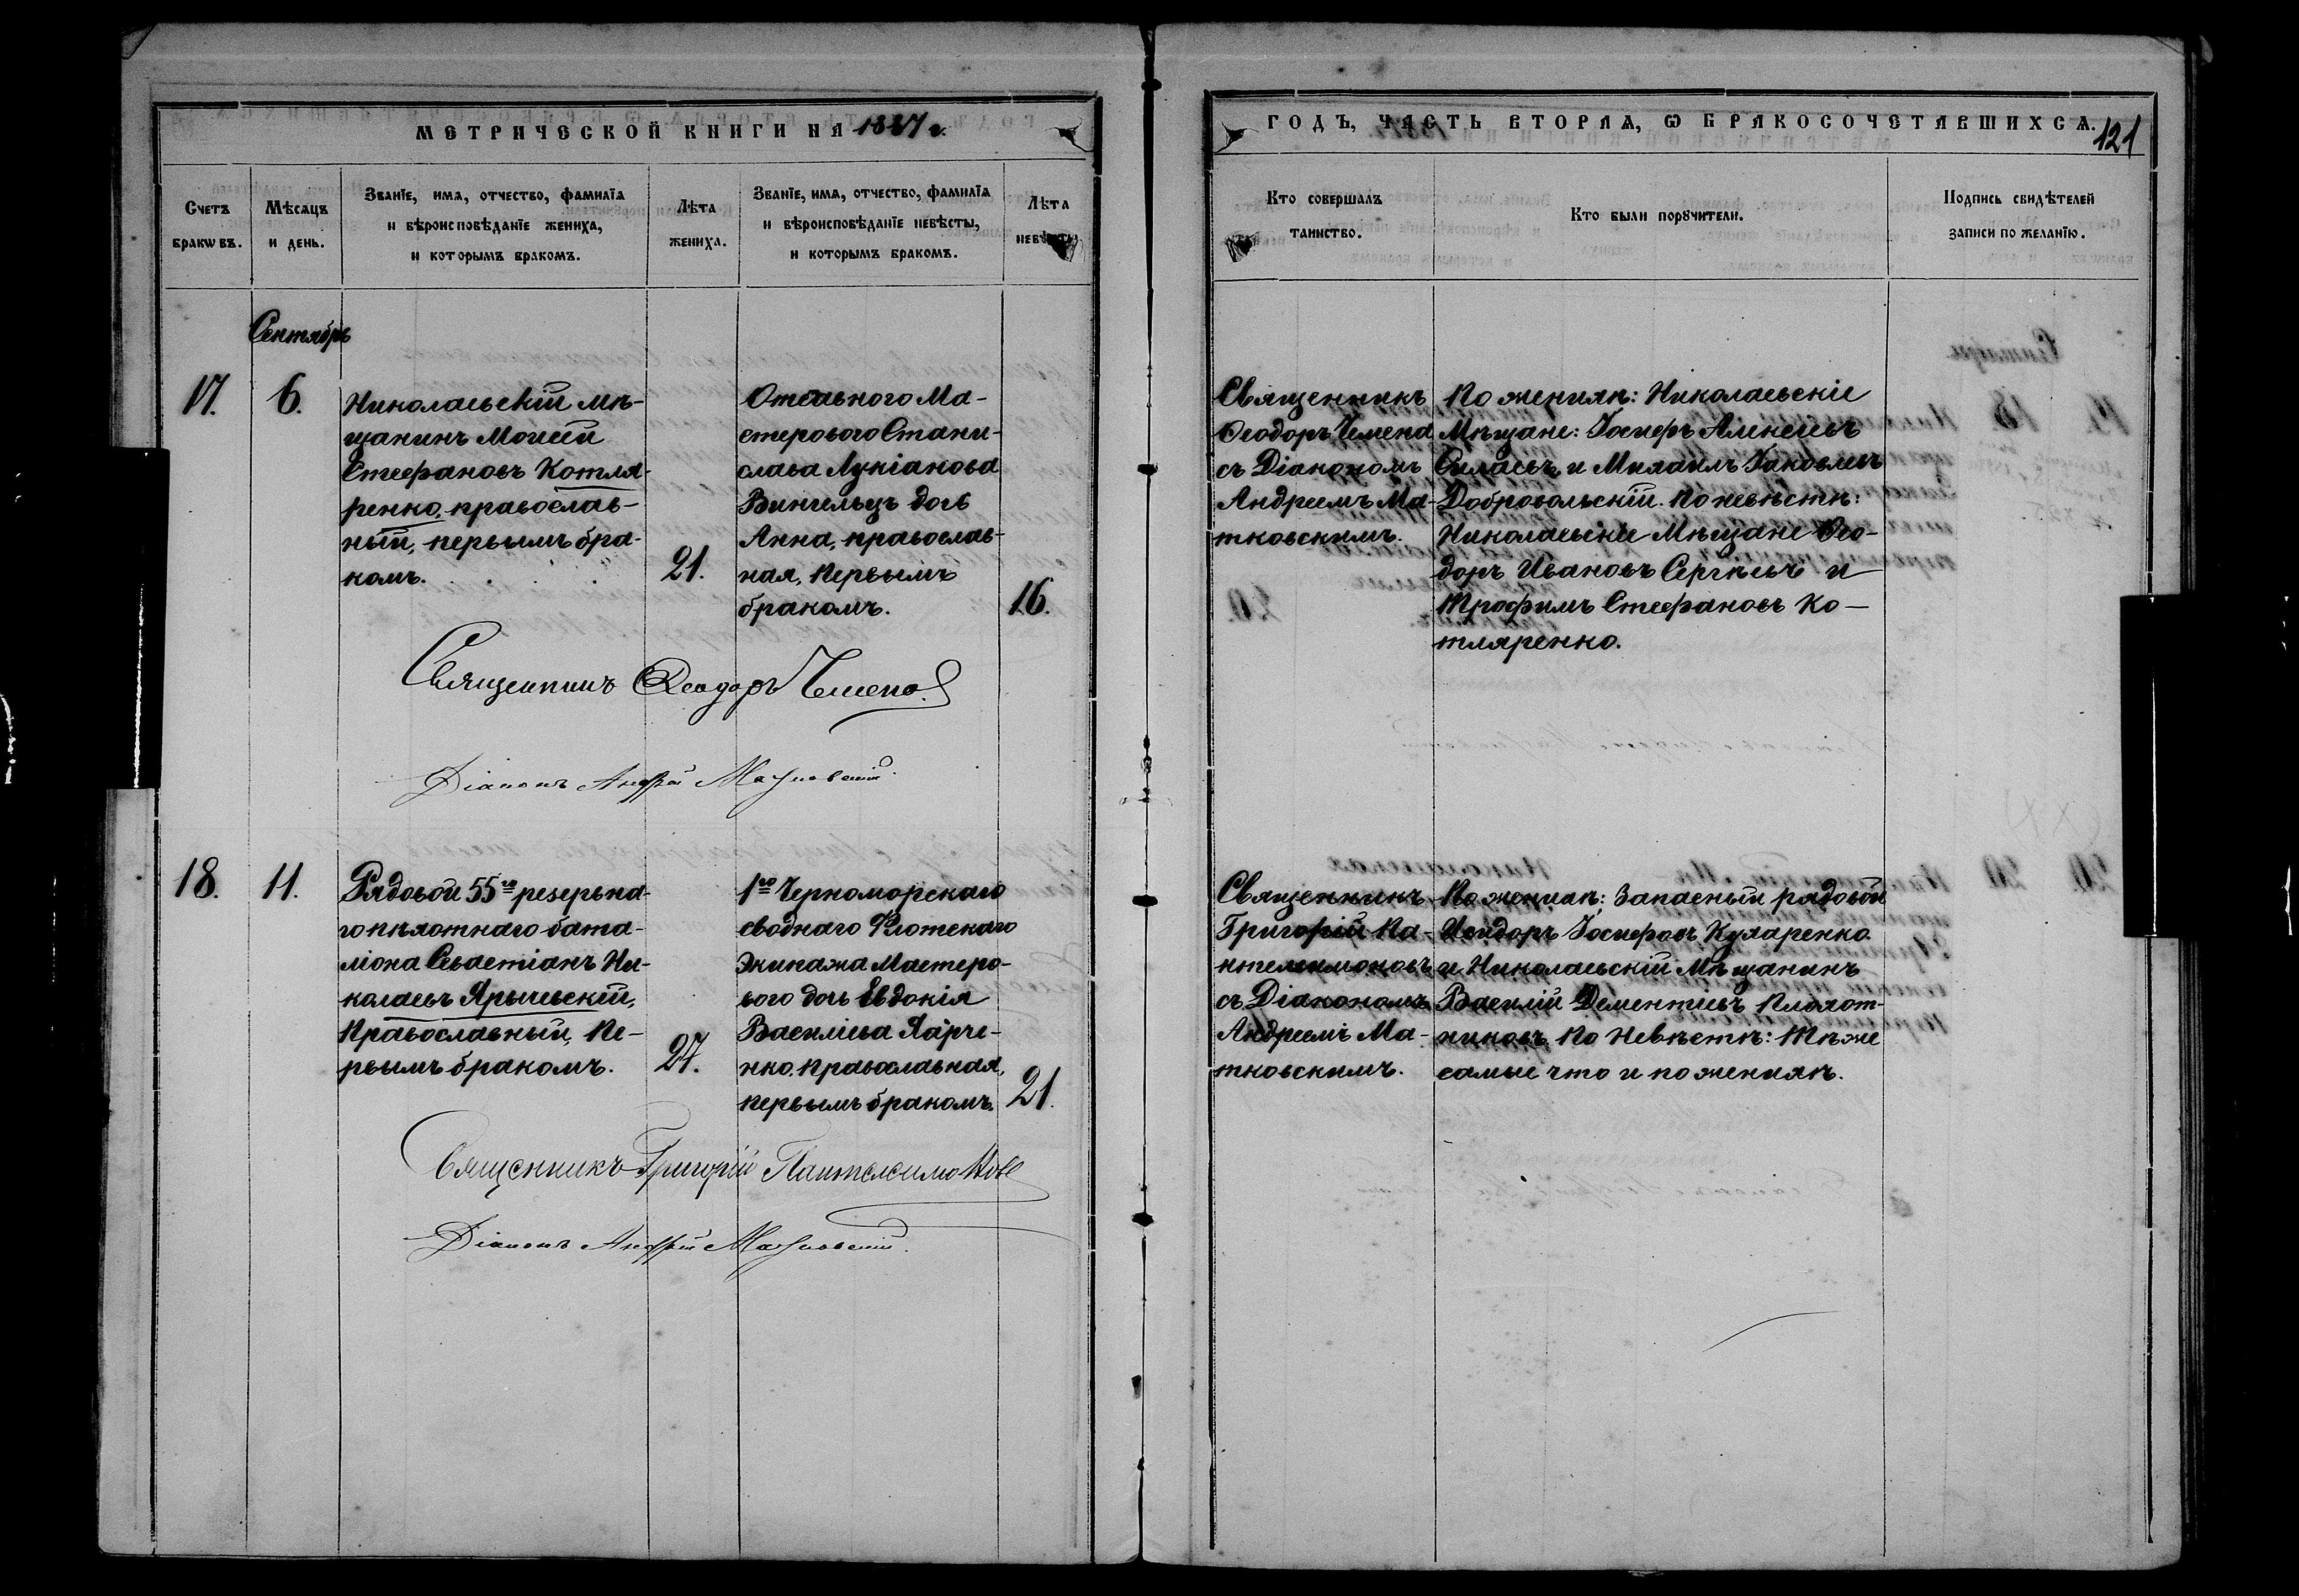 МЕТРИЧЕСКОЙ КНИГИ НА 1887 г.
Счетъ браковъ.
Мѣсяцъ и день.
Званїе, имя, отчество, фамилїя
и вѣроисповѣданїе жениха,
и которымъ бракомъ.
Лѣта
жениха.
Званїе, имя, отчество, фамилїя
и вѣроисповѣданїе невѣсты,
и которымъ бракомъ.
Лѣта
невѣсты
Сентябрь
17.
6.
Николаевскій мѣ-
щанинъ Моисей
Стефановъ Котля-
ренко, православ-
ный, первымъ бра-
комъ.
21.
Отставного Ма-
стерового Стани-
слава Лукіанова
Винчельцъ дочь
Анна, православ-
ная, первымъ
бракомъ.
16.
Священникъ Ѳеодоръ Чемена
Діаконъ Андрей Матковскій.
18.
11.
Рядовой 55го резервна-
го пѣхотнаго бата-
ліона Севастіанъ Ни-
колаевъ Ярычевскій,
Православный, Пе-
рвымъ бракомъ.
27.
1го Черноморскаго
своднаго Флотскаго
Экипажа Мастеро-
вого дочь Евдокія
Василіева Харче-
нко, Православная,
первымъ бракомъ.
21.
Священникъ Григорій Пантелеимоновъ
Діаконъ Андрей Матковскій.
ГОДЪ, ЧАСТЬ ВТОРАЯ, Ѡ БРАКОСОЧЕТАВШИХСЯ.
121
Кто совершалъ
таинство.
Кто были порꙋчители.
Подпись свидѣтелей
записи по желанїю.
Священникъ
Ѳеодоръ Чемена
съ Діакономъ
Андреемъ Ма-
тковскимъ.
По женихѣ: Николаевскіе
Мѣщане: Іосифъ Алексѣевъ
Силаевъ и Михаилъ Іаковлевъ
Добровольскій. По невѣстѣ:
Николаевскіе Мѣщане Ѳео-
доръ Ивановъ Сергѣевъ и
Трофимъ Стефановъ Ко-
тляренко.
Священникъ
Григорій Па-
нтелеимоновъ
съ Діакономъ
Андреемъ Ма-
тковскимъ.
По женихѣ: Запасный рядовой
Исидоръ Іосифовъ Кухаренко
и Николаевскій Мѣщанинъ
Василій Дементіевъ Плохот-
никовъ. По Невѣстѣ: Тѣ же
самые что и по женихѣ.